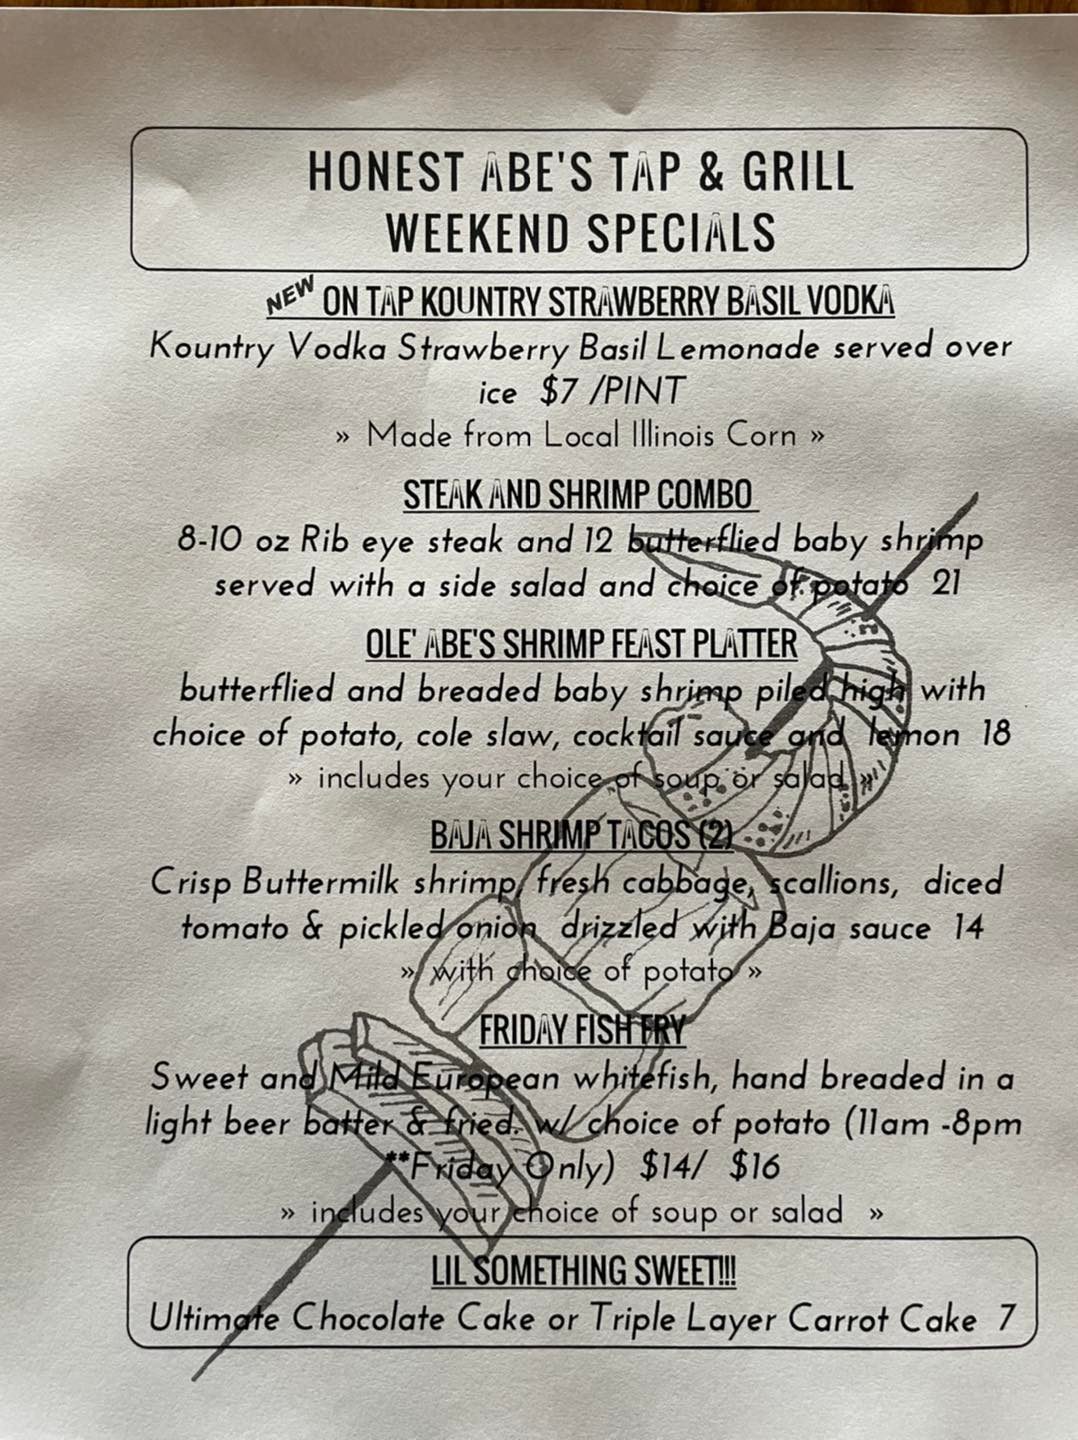 HONEST ABE'S TAP & GRILL
WEEKEND SPECIALS
NEW ON TAP KOUNTRY STRAWBERRY BASIL VODKA
Kountry Vodka Strawberry Basil Lemonade served over
ice $7 /PINT
» Made from Local Illinois Corn »
STEAK AND SHRIMP COMBO
8-10 oz Rib eye steak and 12 butterflied baby shrimp
served with a side salad and choice of potato 21
OLE' ABE'S SHRIMP FEAST PLATTER
butterflied and breaded baby shrimp piled high with
choice of potato, cole slaw, cocktail sauce and lemon 18
» includes your choice of soup or salad »
BAJA SHRIMP TACOS (2)
Crisp Buttermilk shrimp, fresh cabbage, scallions, diced
tomato & pickled onion drizzled with Baja sauce 14
» with choice of potato »
FRIDAY FISH FRY
Sweet and Mild European whitefish, hand breaded in a
light beer batter & fried. w/ choice of potato (11am -8pm
**Friday Only) $14/ $16
» includes your choice of soup or salad »
LIL SOMETHING SWEET!!!
Ultimate Chocolate Cake or Triple Layer Carrot Cake 7